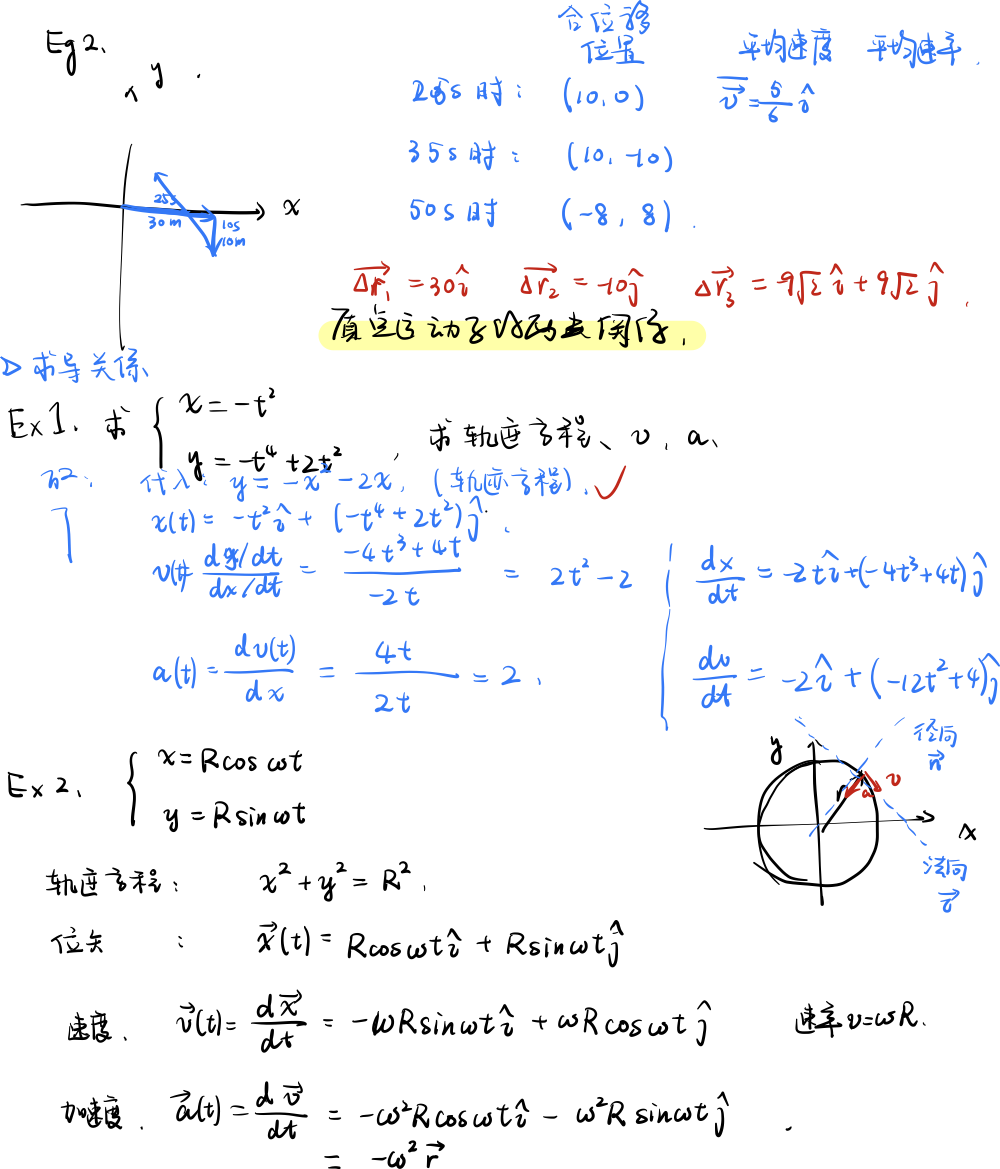 Eg2.
合位移
位置 平均速度 平均速率.
y
25s时: (10,0) \vec{v}=\frac{5}{6}\hat{i}
35s时: (10,-10)
x
25s
30m 10s
10m
50s时 (-8, 8).
\vec{Δr_1}=30\hat{i} \vec{Δr_2}=-10\hat{j} \vec{Δr_3}=-9\sqrt{2}\hat{i}+9\sqrt{2}\hat{j}.
质点运动
▷求导关系
Ex1. 求 { x=-t^2
y=-t^4+2t^2, 求轨迹方程、v, a、
解: 代入: y=-x^2-2x, (轨迹方程). ✓
x(t)=-t^2\hat{i}+(-t^4+2t^2)\hat{j}.
v(t)=\frac{dy/dt}{dx/dt}=\frac{-4t^3+4t}{-2t}=2t^2-2 \frac{dx}{dt}=-2t\hat{i}+(-4t^3+4t)\hat{j}
a(t)=\frac{dv(t)}{dx}=\frac{4t}{2t}=2, \frac{dv}{dt}=-2\hat{i}+(-12t^2+4)\hat{j}
Ex2. { x=Rcosωt
y=Rsinωt
y
径向
\vec{n}
r a v
x
法向
\vec{τ}
轨迹方程: x^2+y^2=R^2,
位矢: \vec{x}(t)=Rcosωt\hat{i}+Rsinωt\hat{j}
速度. \vec{v}(t)=\frac{d\vec{x}}{dt}=-ωRsinωt\hat{i}+ωRcosωt\hat{j} 速率v=ωR.
加速度. \vec{a}(t)=\frac{d\vec{v}}{dt}=-ω^2Rcosωt\hat{i}-ω^2Rsinωt\hat{j}.
=-ω^2\vec{r}